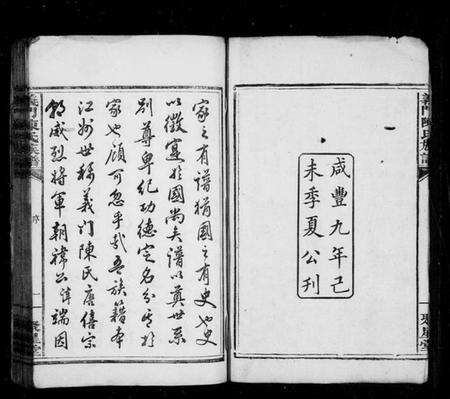 咸豐九年己
未季夏公刊
義門陳氏族譜
聚星堂
家之有譜猶國之有史也史
以徵實於國尚矣譜以奠世系
別尊卑紀功德定名分其於
家也顧可忽乎哉吾族籍本
江州世稱義門陳氏唐僖宗
朝威烈將軍朝禕公諱端因
義門陳氏族譜
序
一
聚星堂